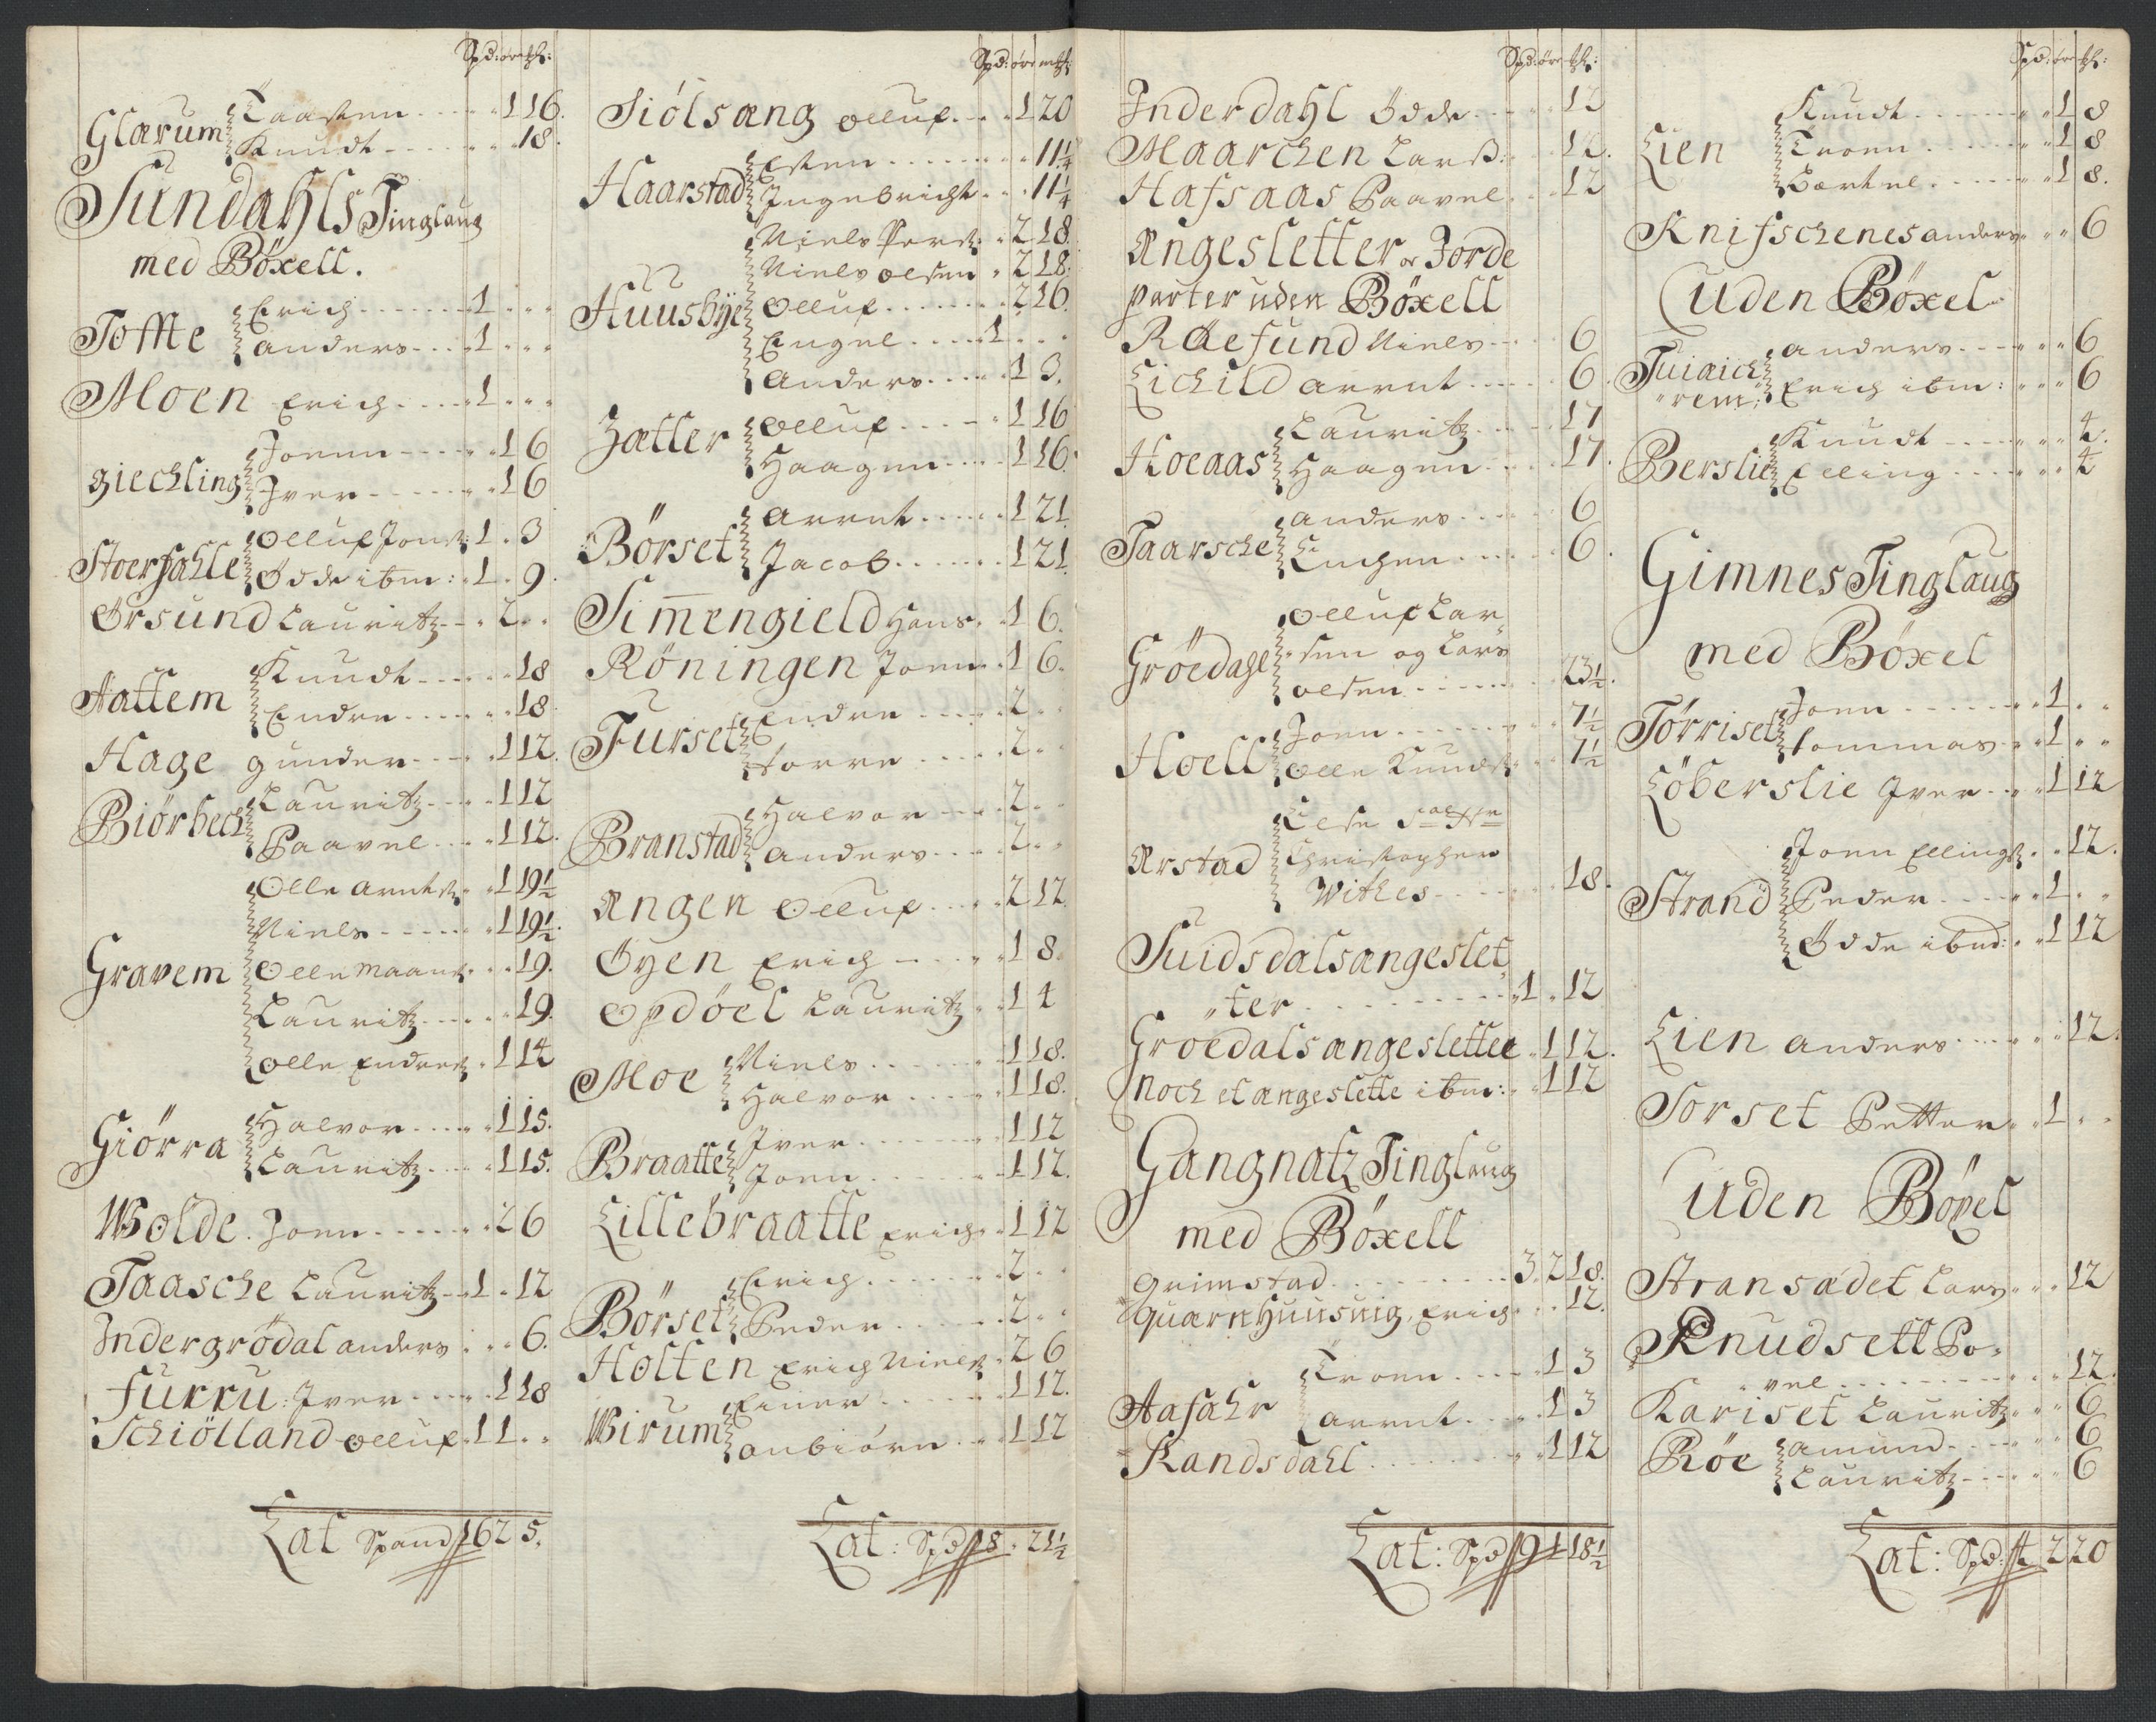 Spd: øre ß:
Glærum Taasten 1 16.
Knudt 18.
Sundahls Tinglaug
med Böxell.
Toffte Erich 1
anders 1
Moen Erich 1
giechling Joenn 1 6
Iver 1 6
Stoerfahle Olluf Jons: 1 . 3
Ödde ibm: 1 . 9.
Örsund Lauritz 2
Hattem Knudt 18
Endre 18.
Hage gunder 1 12.
Biörbech Lauritz 1 12
Paavel 1 12.
Gravem Olle arnts: 1 19½
Niels 1 19½.
Olle Maans: 19.
Lauritz 19.
Olle Endres: 1 14
Giörra Halvor 1 15.
Lauritz 1 15.
Wolde. Joen 2 6
Taasche Lauritz 1 . 12
Indergrödal anders 6.
Furru: Iver 1 18
Schiölland Olluf 1 1
Lat Spand 16 2 5.
Spd: øre ß
Siölsæng Olluf 1 20
Haarstad Esten 11¼
Ingebricht 11¼
Huusbÿe Niels Pers: 2 18.
Niels olsen 2 18.
Olluf 2 16.
Engel 1
Anders 1 3.
Zætter Olluf 1 16
Haagen 1 16.
Börset Arent 1 21.
Jacob 1 21.
Sim̄engield Hans 1 6.
Röningen Joen 1 6.
Furset Endre 2
Torre 2
Branstad Halvor 2
anders 2
Ængen Olluf 2 12.
Öyen Erich 1 8.
Opdöel Lauritz 1 4
Moe Niels 1 18.
Halvor 1 18.
Braatte Iver 1 12
Joen 1 12.
Lillebraatte Erich 1 12
Börset Erich 2
Peder 2
Holten Erich Niels: 2 6
Wirum Einer 1 12.
anbiörn 1 12
Lat: Spd 18 . 21½
Spd: øre ß:
Inderdahl Ödde 12
Maarchen Larß: 12.
Hafsaas Paavel 12
Ængesletter or Jorde
parter uden Böxell
Ræefund Niels 6
Lichild arent 6.
Hoeaas Lauritz 17
Haagen 17.
Taarsche anders 6
Enchen 6.
Gröedahl Olluf Lar
sen og Lars
olsen 23½.
Hoell Joen 7½
Olle Knuds: 7½
Ærstad
Christopher
Withes 18.
Suidsdalsængeslet
ter 1 . 12
Gröedalsængeslette 1 12.
Noch et ængeslette ibm: 1 12
Gangnatz Tinglaug
med Böxell
Grimstad 3. 2 18.
Quarnhuusuig, Erich 12.
Aafahr Troen 1 3
arent 1 3
Kandsdahl 1 12
Lat: Spd 9 1 18½
Spd: øre ß:
Lien Knudt 1 8
Troen 1 8
Bærtel 1 8.
Knifschenes anders 6
uden Böxel
Tuiaich
rem: anders 6
Erich ibm: 6
Berslie Knudt 4.
Elling 4
Gimnes Tinglaug
med Böxel
Törriset Joen 1
Tommas 1
Löberslie Iver 1 12
Strand Joen Ellings: 12.
Peder 1
Ödde ibnd: 1 12
Lien anders 12.
Sorset Petter 1
uden Böxel
Stransædet Lars 12
Knudsett Po-
vel 12.
Kariset Lauritz 6
Röe amund 6
Lauritz 6
Lat: Spd: 4 2 20